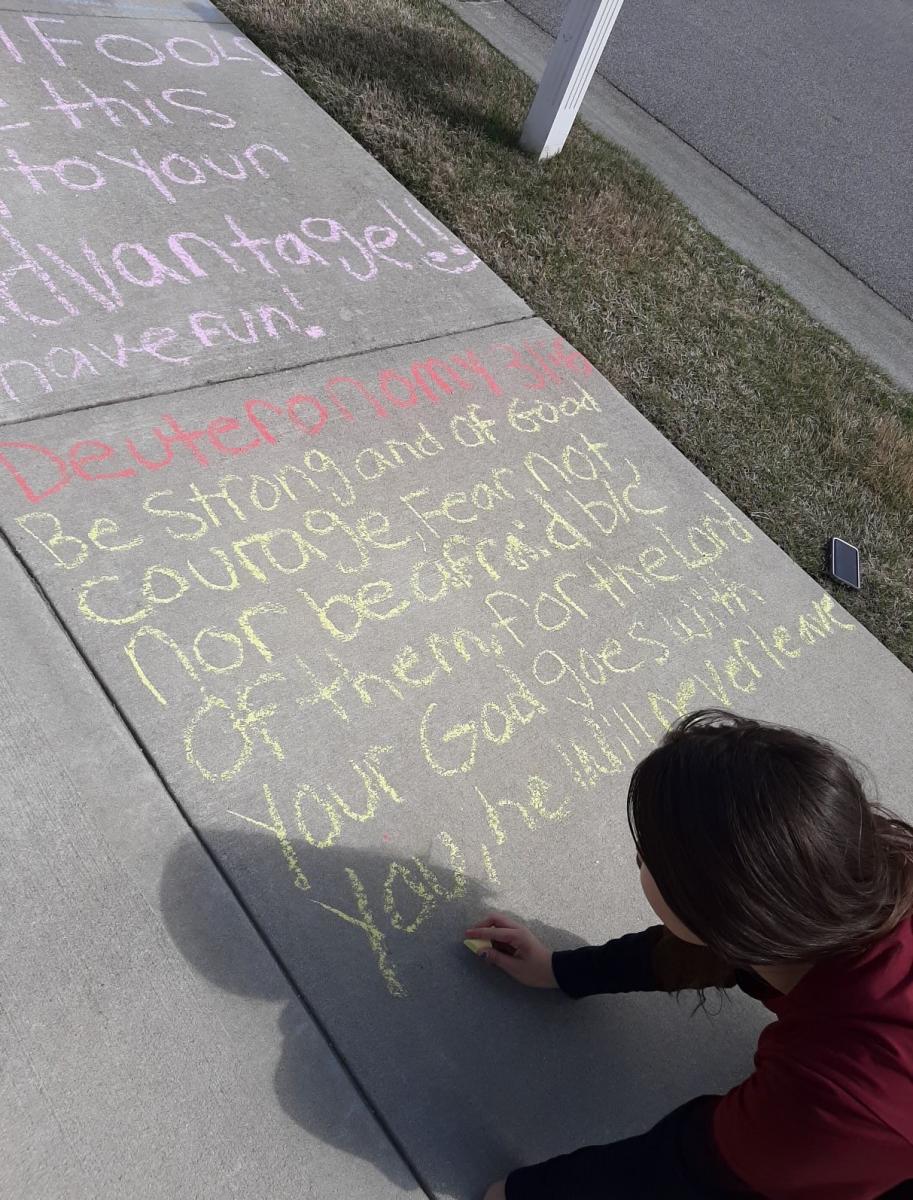 Fools
this
to your
advantage!!
have fun!
Deuteronomy 31:6
Be Strong and of Good
courage, Fear not,
nor be afraid b/c
Of them, For the Lord
Your God goes with
You, he will never leave